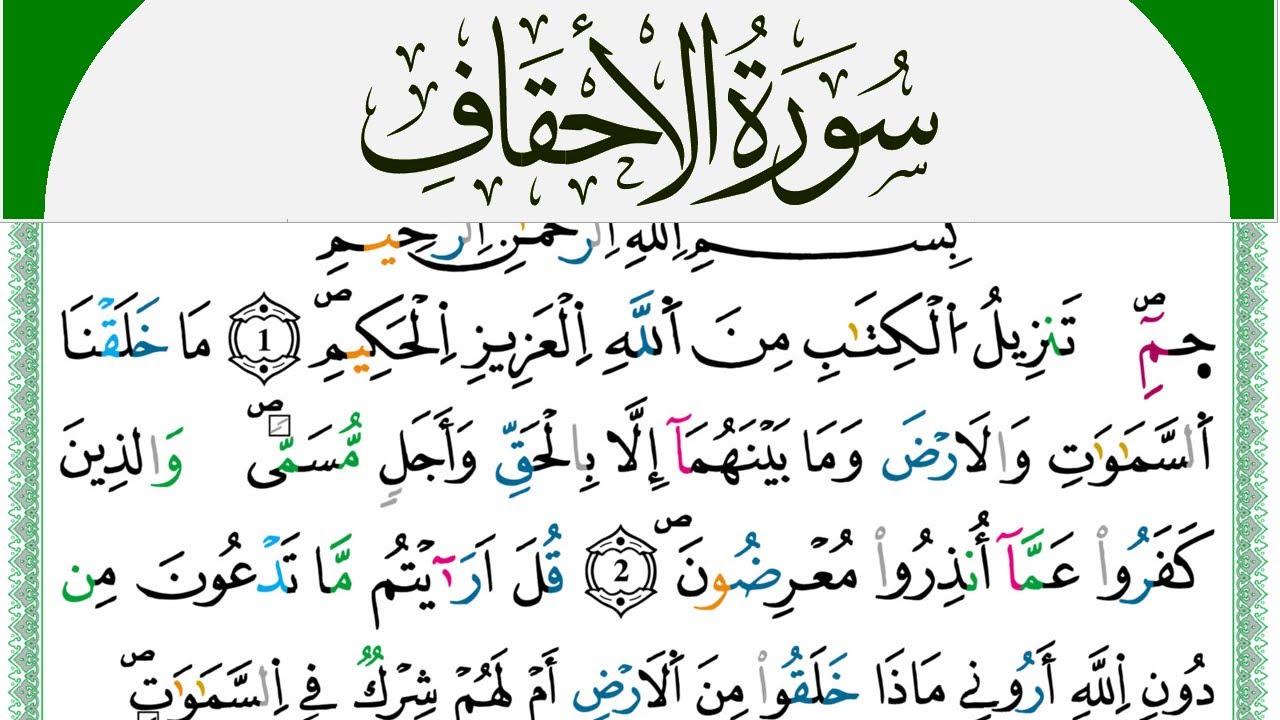 سُورَةُ الأَحْقَافِ
بِسْمِ اِللَّهِ اِلرَّحْمَٰنِ اِلرَّحِيمِ
حمِٓۖ تَنزِيلُ اُ۬لْكِتَٰبِ مِنَ اَ۬للَّهِ اِ۬لْعَزِيزِ اِ۬لْحَكِيمِۖ 1 مَا خَلَقْنَا
اَ۬لسَّمَٰوَٰتِ وَالَارْضَ وَمَا بَيْنَهُمَآ إِلَّا بِالْحَقِّ وَأَجَلٖ مُّسَمّٗيۖ وَالذِينَ
كَفَرُواْ عَمَّآ أُنذِرُواْ مُعْرِضُونَۖ 2 قُلَ اَرَٰٓيْتُم مَّا تَدْعُونَ مِن
دُونِ اِ۬للَّهِ أَرُونِے مَاذَا خَلَقُواْ مِنَ اَ۬لَارْضِ أَمْ لَهُمْ شِرْكٞ فِے اِ۬لسَّمَٰوَٰتِۖ